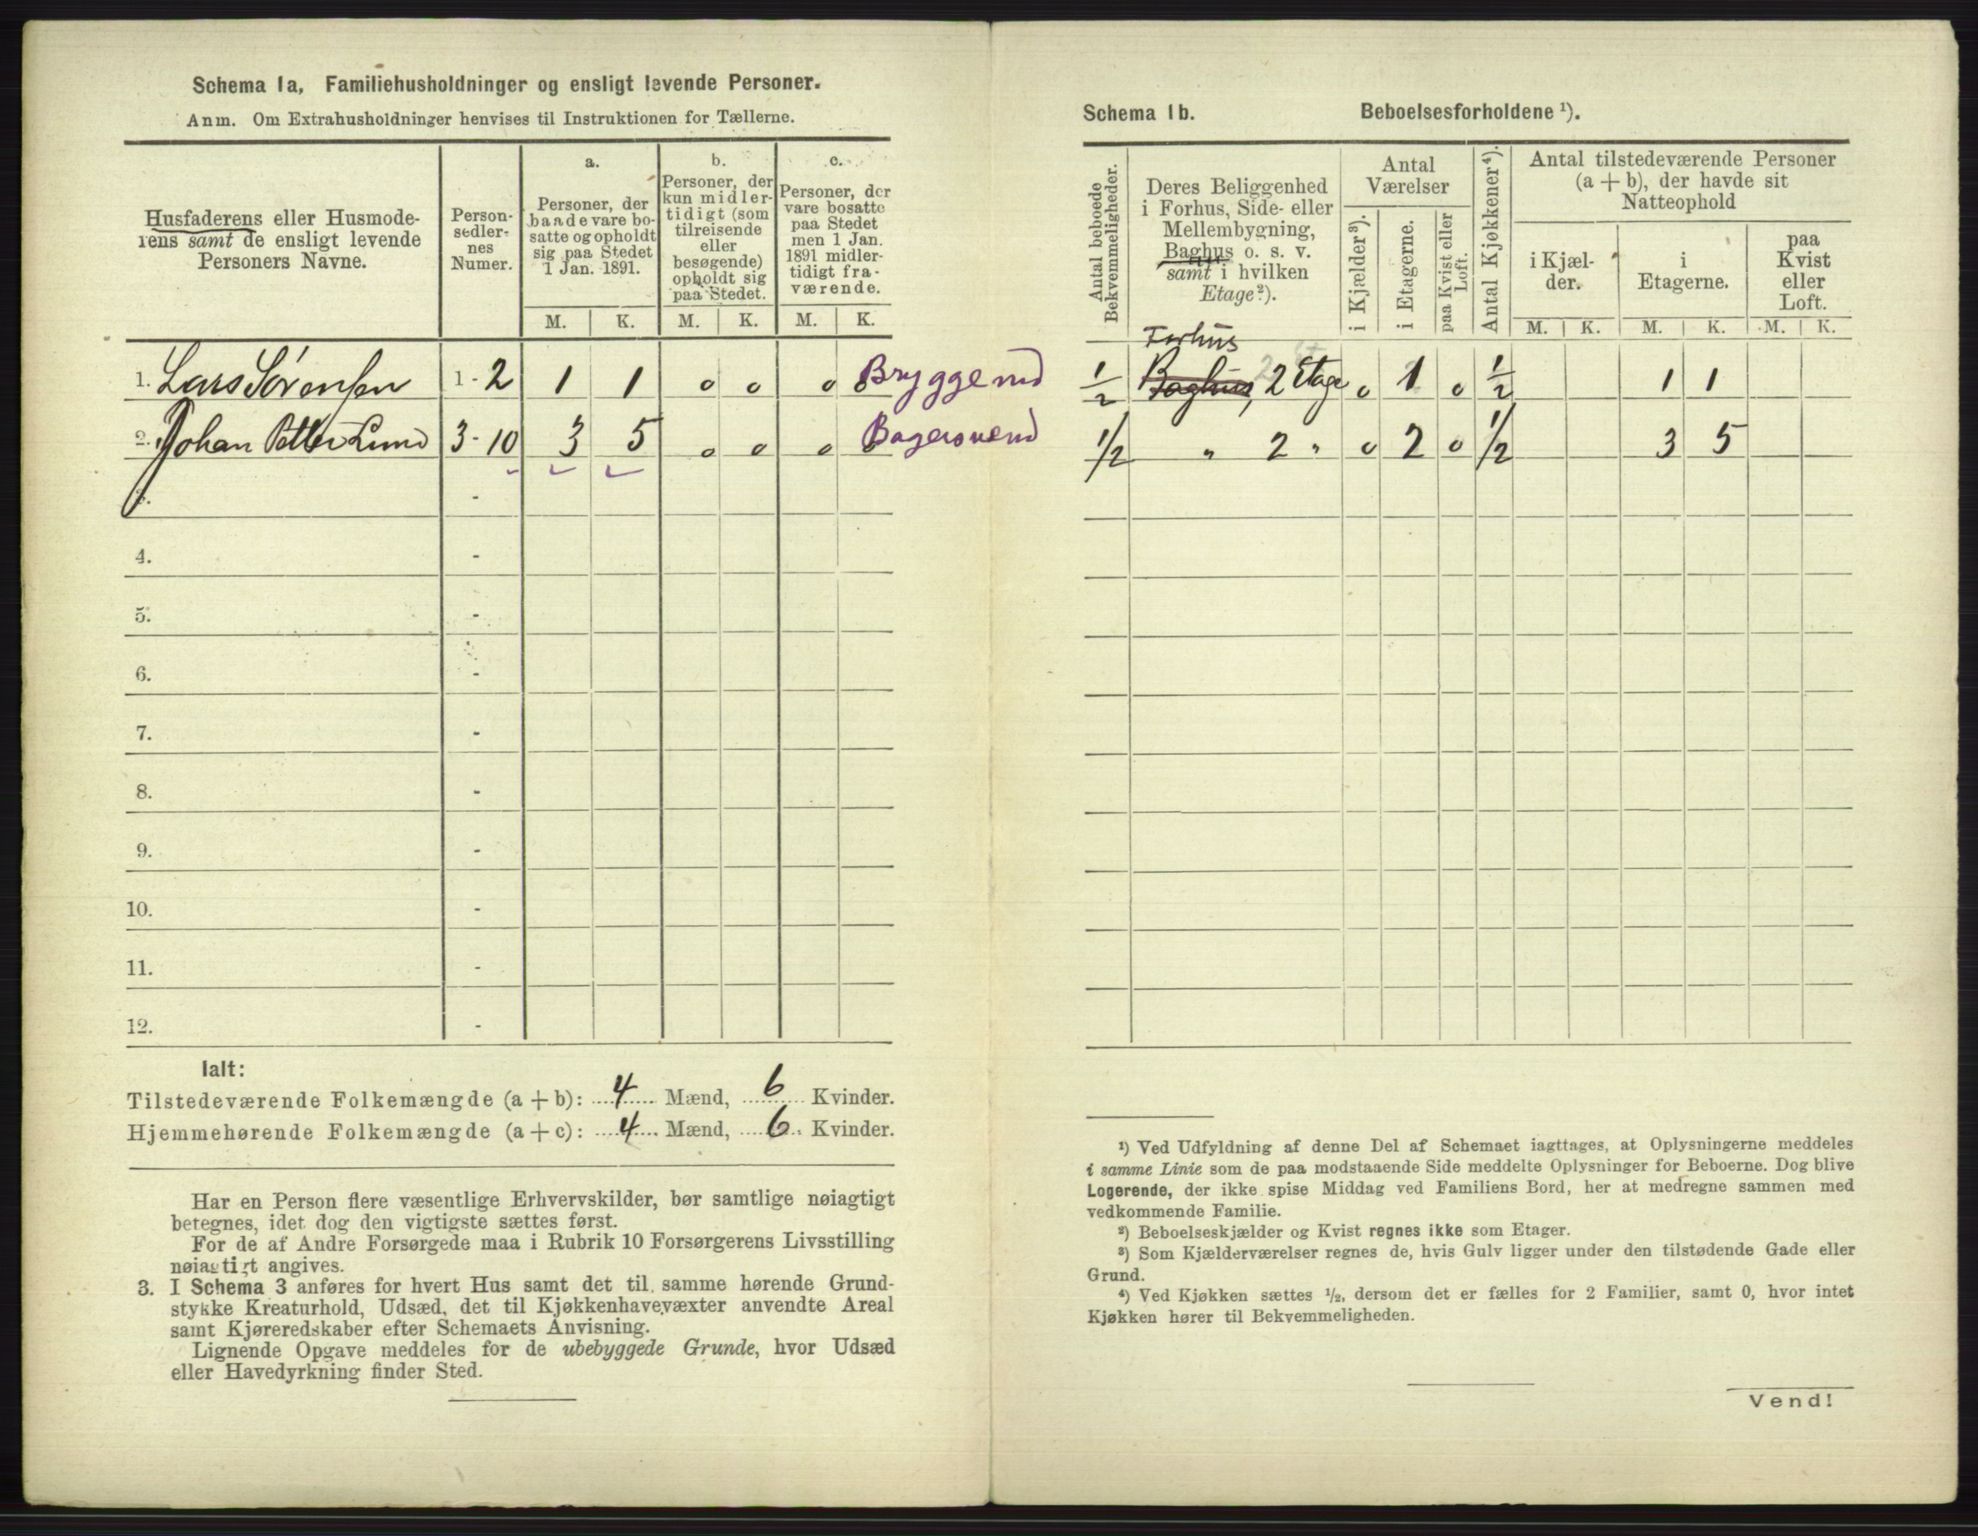 Schema 1a, Familiehusholdninger og ensligt levende Personer.
Anm. Om Extrahusholdninger henvises til Instruktionen for Tællerne.
Husfaderens eller Husmode-
rens samt de ensligt levende
Personers Navne.
Person-
sedler-
nes
Numer.
a.
Personer, der
baade vare bo-
satte og opholdt
sig paa Stedet
1 Jan. 1891.
b.
Personer, der
kun midler-
tidigt (som
tilreisende
eller
besøgende)
opholdt sig
paa Stedet.
c.
Personer, der
vare bosatte
paa Stedet
men 1 Jan.
1891 midler-
tidigt fra-
værende.
M. K. M. K. M. K.
1. Lars Sörensen 1 - 2 1 1 0 0 0 0 Bryggend
2. Johan Petter Lund 3 - 10 3 5 0 0 0 0 Bagersvend
3. -
4. -
5. -
6. -
7. -
8. -
9. -
10. -
11. -
12. -
Ialt:
Tilstedeværende Folkemængde (a + b): 4 Mænd, 6 Kvinder.
Hjemmehørende Folkemængde (a + c): 4 Mænd, 6 Kvinder.
Har en Person flere væsentlige Erhvervskilder, bør samtlige nøiagtigt
betegnes, idet dog den vigtigste sættes først.
For de af Andre Forsørgede maa i Rubrik 10 Forsørgerens Livsstilling
nøiagtigt angives.
3. I Schema 3 anføres for hvert Hus samt det til samme hørende Grund-
stykke Kreaturhold, Udsæd, det til Kjøkkenhavevæxter anvendte Areal
samt Kjøreredskaber efter Schemaets Anvisning.
Lignende Opgave meddeles for de ubebyggede Grunde, hvor Udsæd
eller Havedyrkning finder Sted.
Schema 1b. Beboelsesforholdene ¹).
Antal beboede
Bekvemmeligheder.
Deres Beliggenhed
i Forhus, Side- eller
Mellembygning,
Baghus o. s. v.
samt i hvilken
Etage²).
Antal
Værelser
i Kjælder³).
i Etagerne.
paa Kvist eller
Loft.
Antal Kjøkkener⁴).
Antal tilstedeværende Personer
(a + b), der havde sit
Natteophold
i Kjæl-
der.
i
Etagerne.
paa
Kvist
eller
Loft.
M. K. M. K. M. K.
Forhus
1/2 Baghus, 2 Etage 0 1 0 1/2 1 1
1/2 " 2 " 0 2 0 1/2 3 5
¹) Ved Udfyldning af denne Del af Schemaet iagttages, at Oplysningerne meddeles
i samme Linie som de paa modstaaende Side meddelte Oplysninger for Beboerne. Dog blive
Logerende, der ikke spise Middag ved Familiens Bord, her at medregne sammen med
vedkommende Familie.
²) Beboelseskjælder og Kvist regnes ikke som Etager.
³) Som Kjælderværelser regnes de, hvis Gulv ligger under den tilstødende Gade eller
Grund.
⁴) Ved Kjøkken sættes ½, dersom det er fælles for 2 Familier, samt 0, hvor intet
Kjøkken hører til Bekvemmeligheden.
Vend!